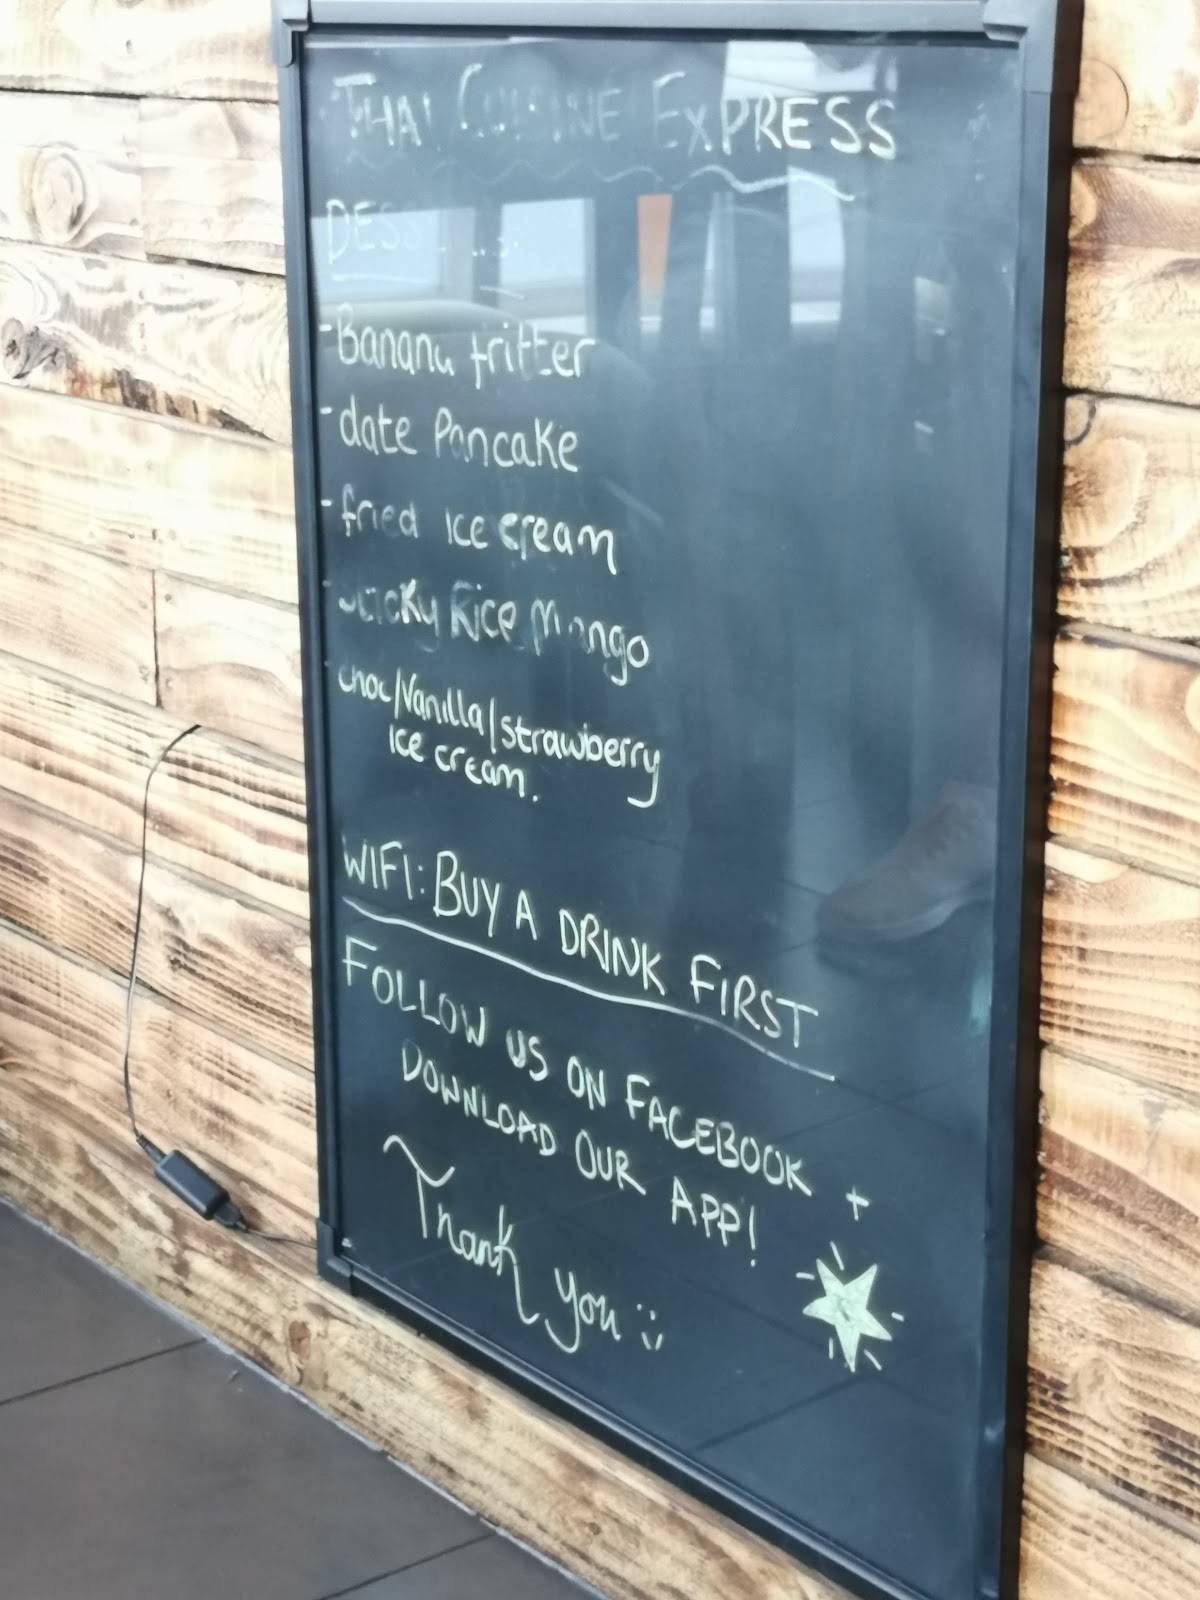 THAI CUISINE EXPRESS
- Banana fritter
- date Pancake
- fried ice cream
- Sticky Rice Mango
- choc/Vanilla/strawberry
ice cream.
WIFI: BUY A DRINK FIRST
FOLLOW US ON FACEBOOK +
DOWNLOAD OUR APP!
Thank you :)